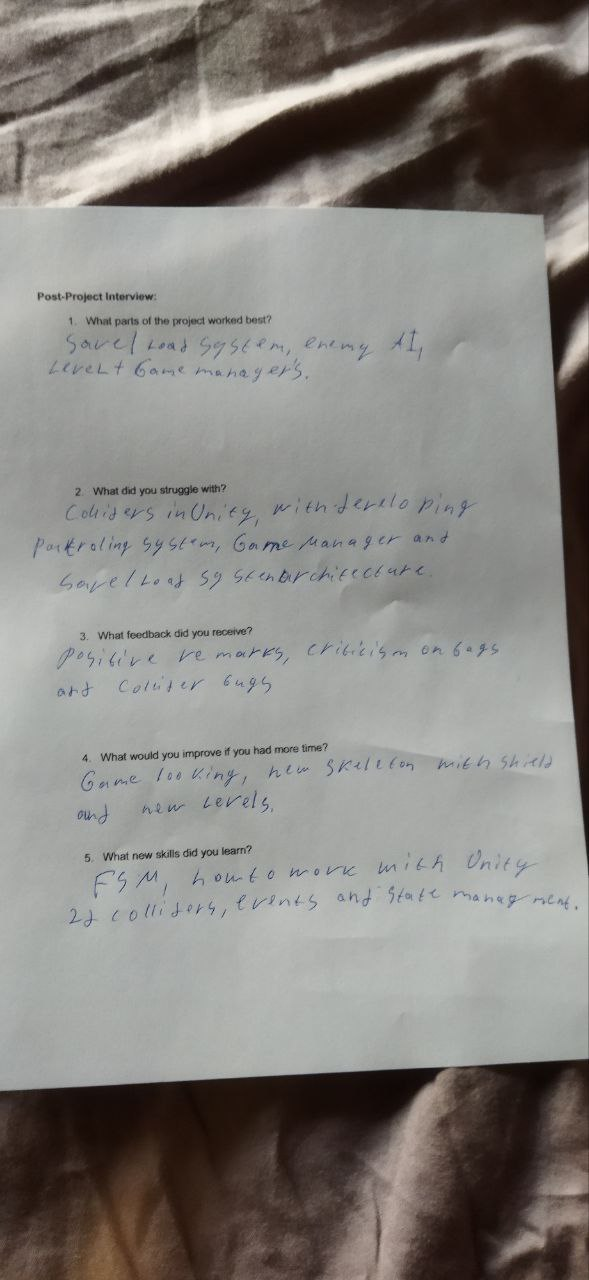 Post-Project Interview:
1. What parts of the project worked best?
Save/Load system, enemy AI,
Level + Game manager's.
2. What did you struggle with?
Colliders in Unity, with developing
Partroling system, Game Manager and
Save/Load system architecture.
3. What feedback did you receive?
Positive remarks, criticism on bags
and Collider bugs
4. What would you improve if you had more time?
Game looking, new skeleton with shield
and new Levels.
5. What new skills did you learn?
FSM, how to work with Unity
2d colliders, events and state managment.